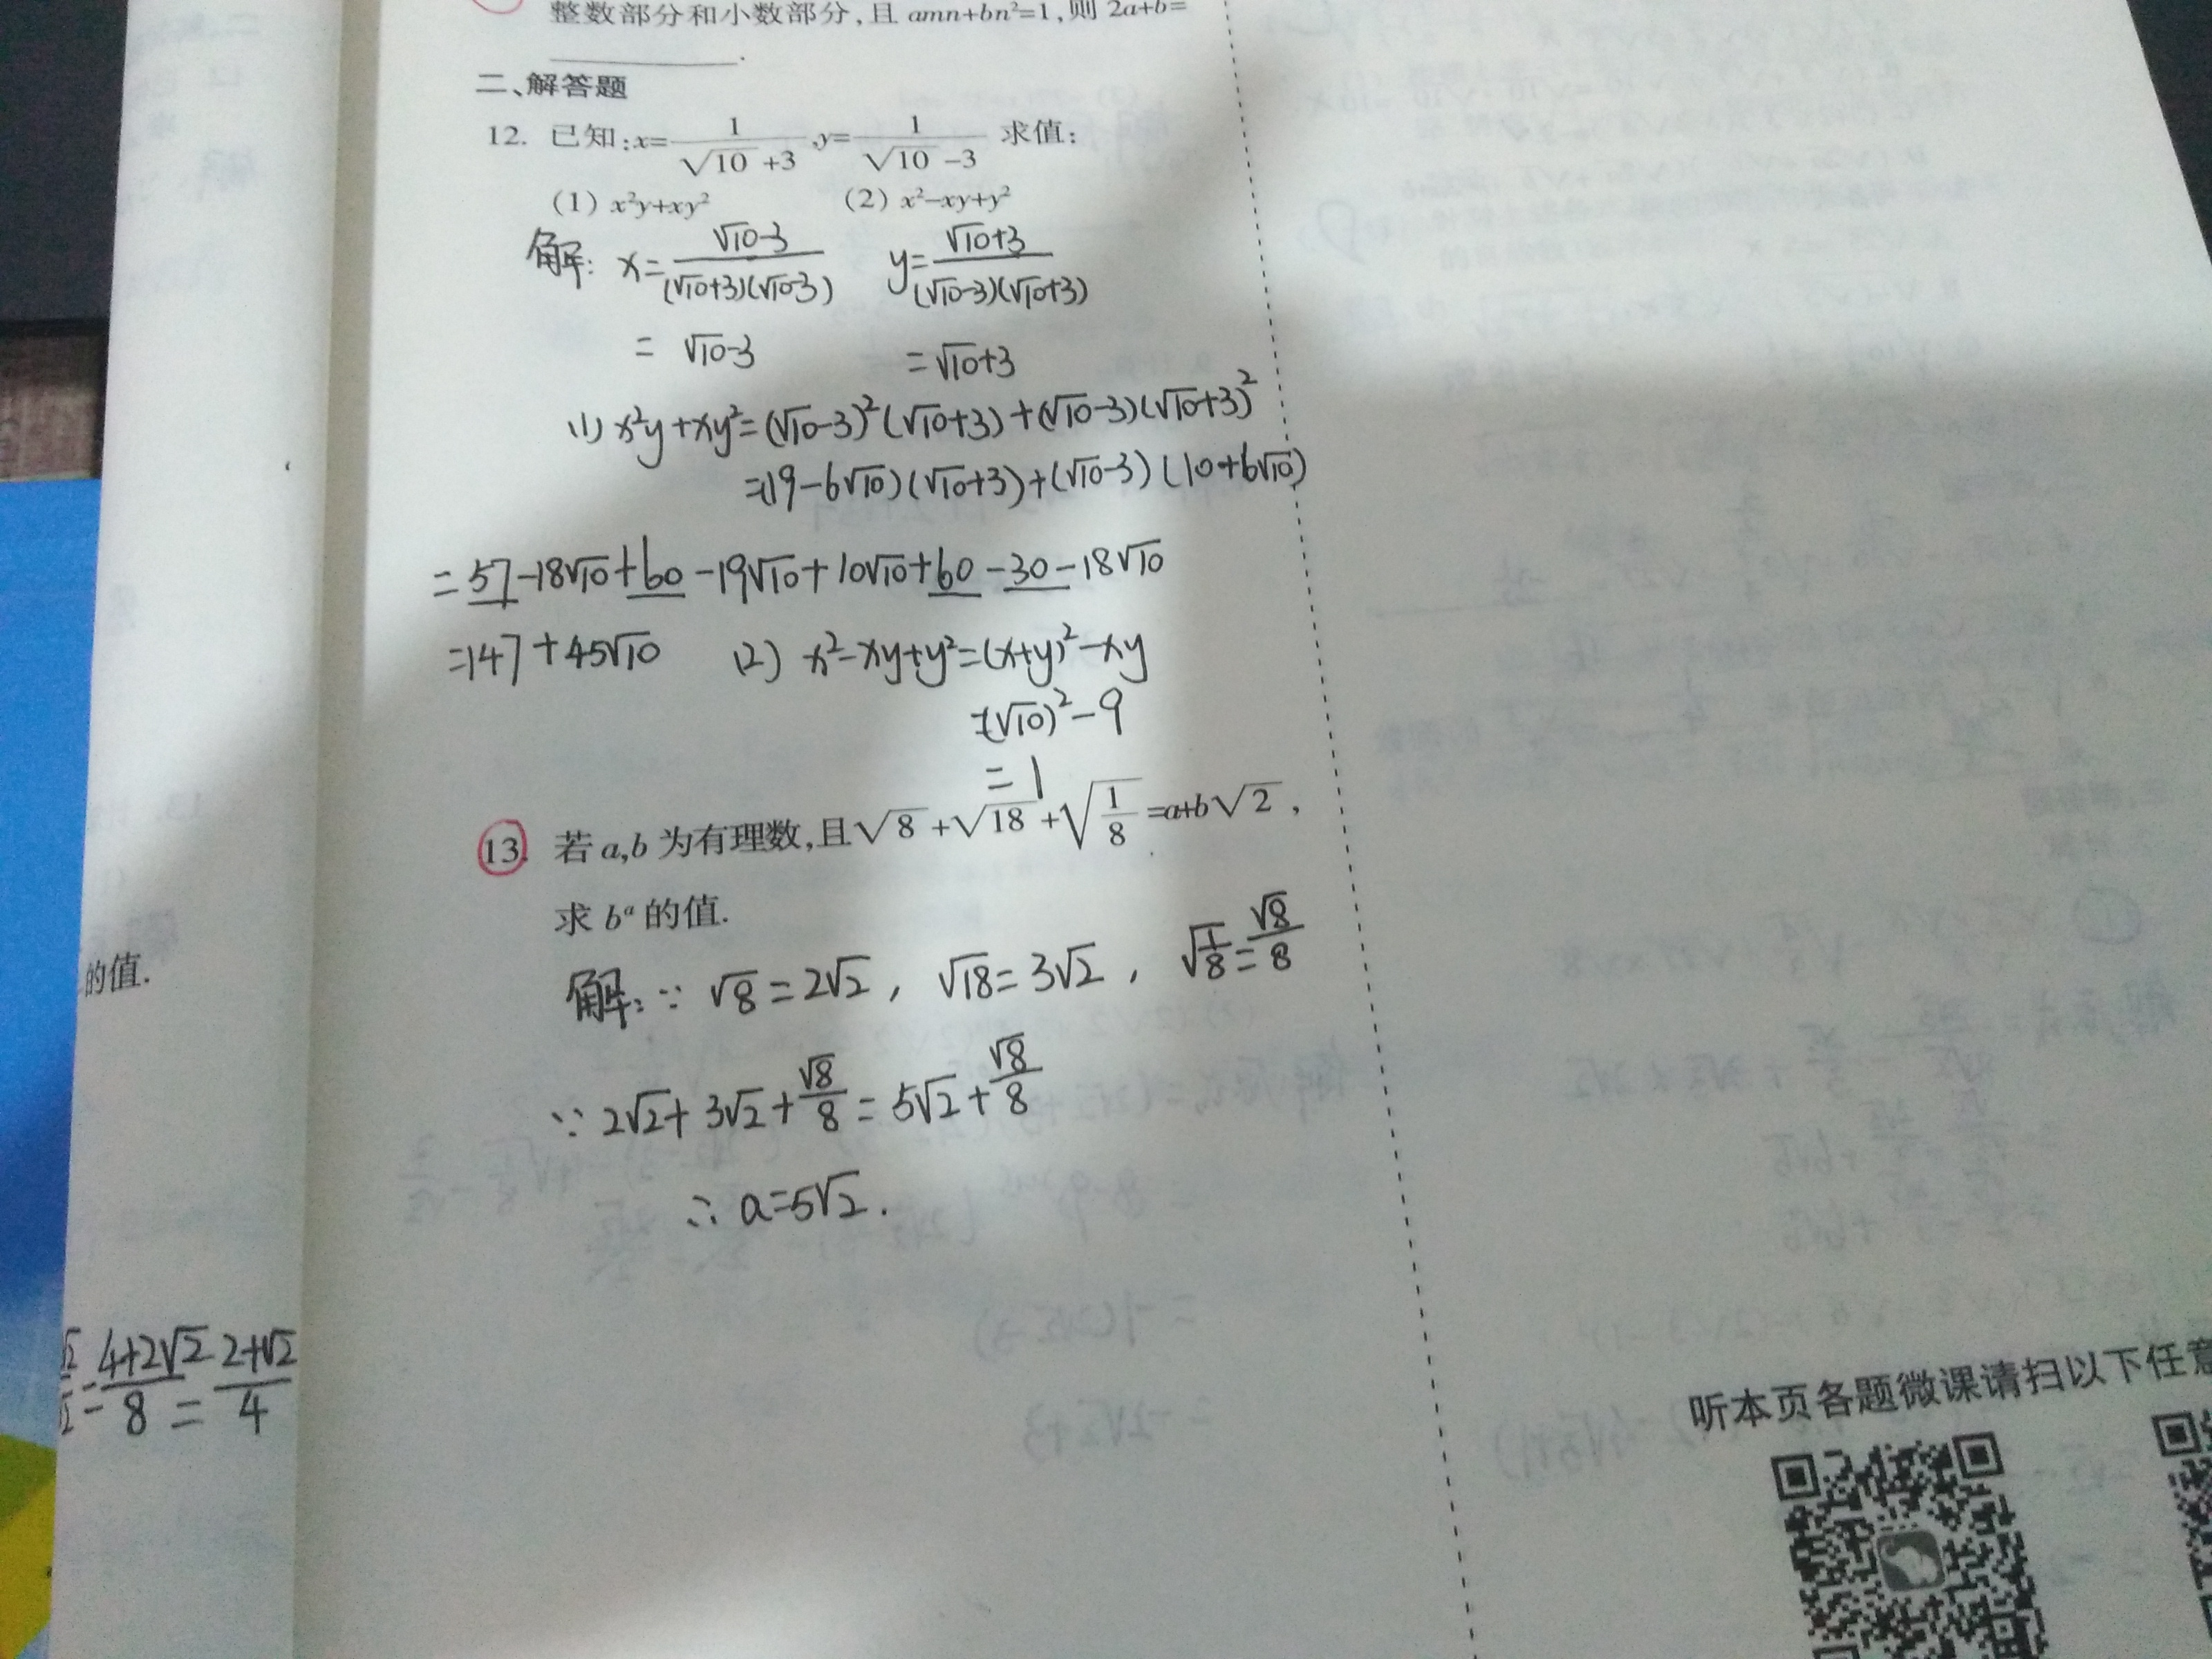 整数部分和小数部分,且 amn+bn²=1,则 2a+b=
________.
二、解答题
12. 已知:x=1/(√10+3),y=1/(√10-3) 求值:
(1) x²y+xy² (2) x²-xy+y²
解: x=(√10-3)/((√10+3)(√10-3)) y=(√10+3)/((√10-3)(√10+3))
= √10-3 =√10+3
(1) x²y+xy²=(√10-3)²(√10+3)+(√10-3)(√10+3)²
=(19-6√10)(√10+3)+(√10-3)(10+6√10)
=57-18√10+60-19√10+10√10+60-30-18√10
=147+45√10 (2) x²-xy+y²=(x+y)²-xy
=(√10)²-9
=1
13. 若 a,b 为有理数,且√8+√18+√(1/8)=a+b√2,
求 bᵃ 的值.
解:∵ √8=2√2, √18=3√2, √(1/8)=√8/8
∵ 2√2+3√2+√8/8=5√2+√8/8
∴ a=5√2.
的值.
4+2√2/8=2+√2/4
听本页各题微课请扫以下任意